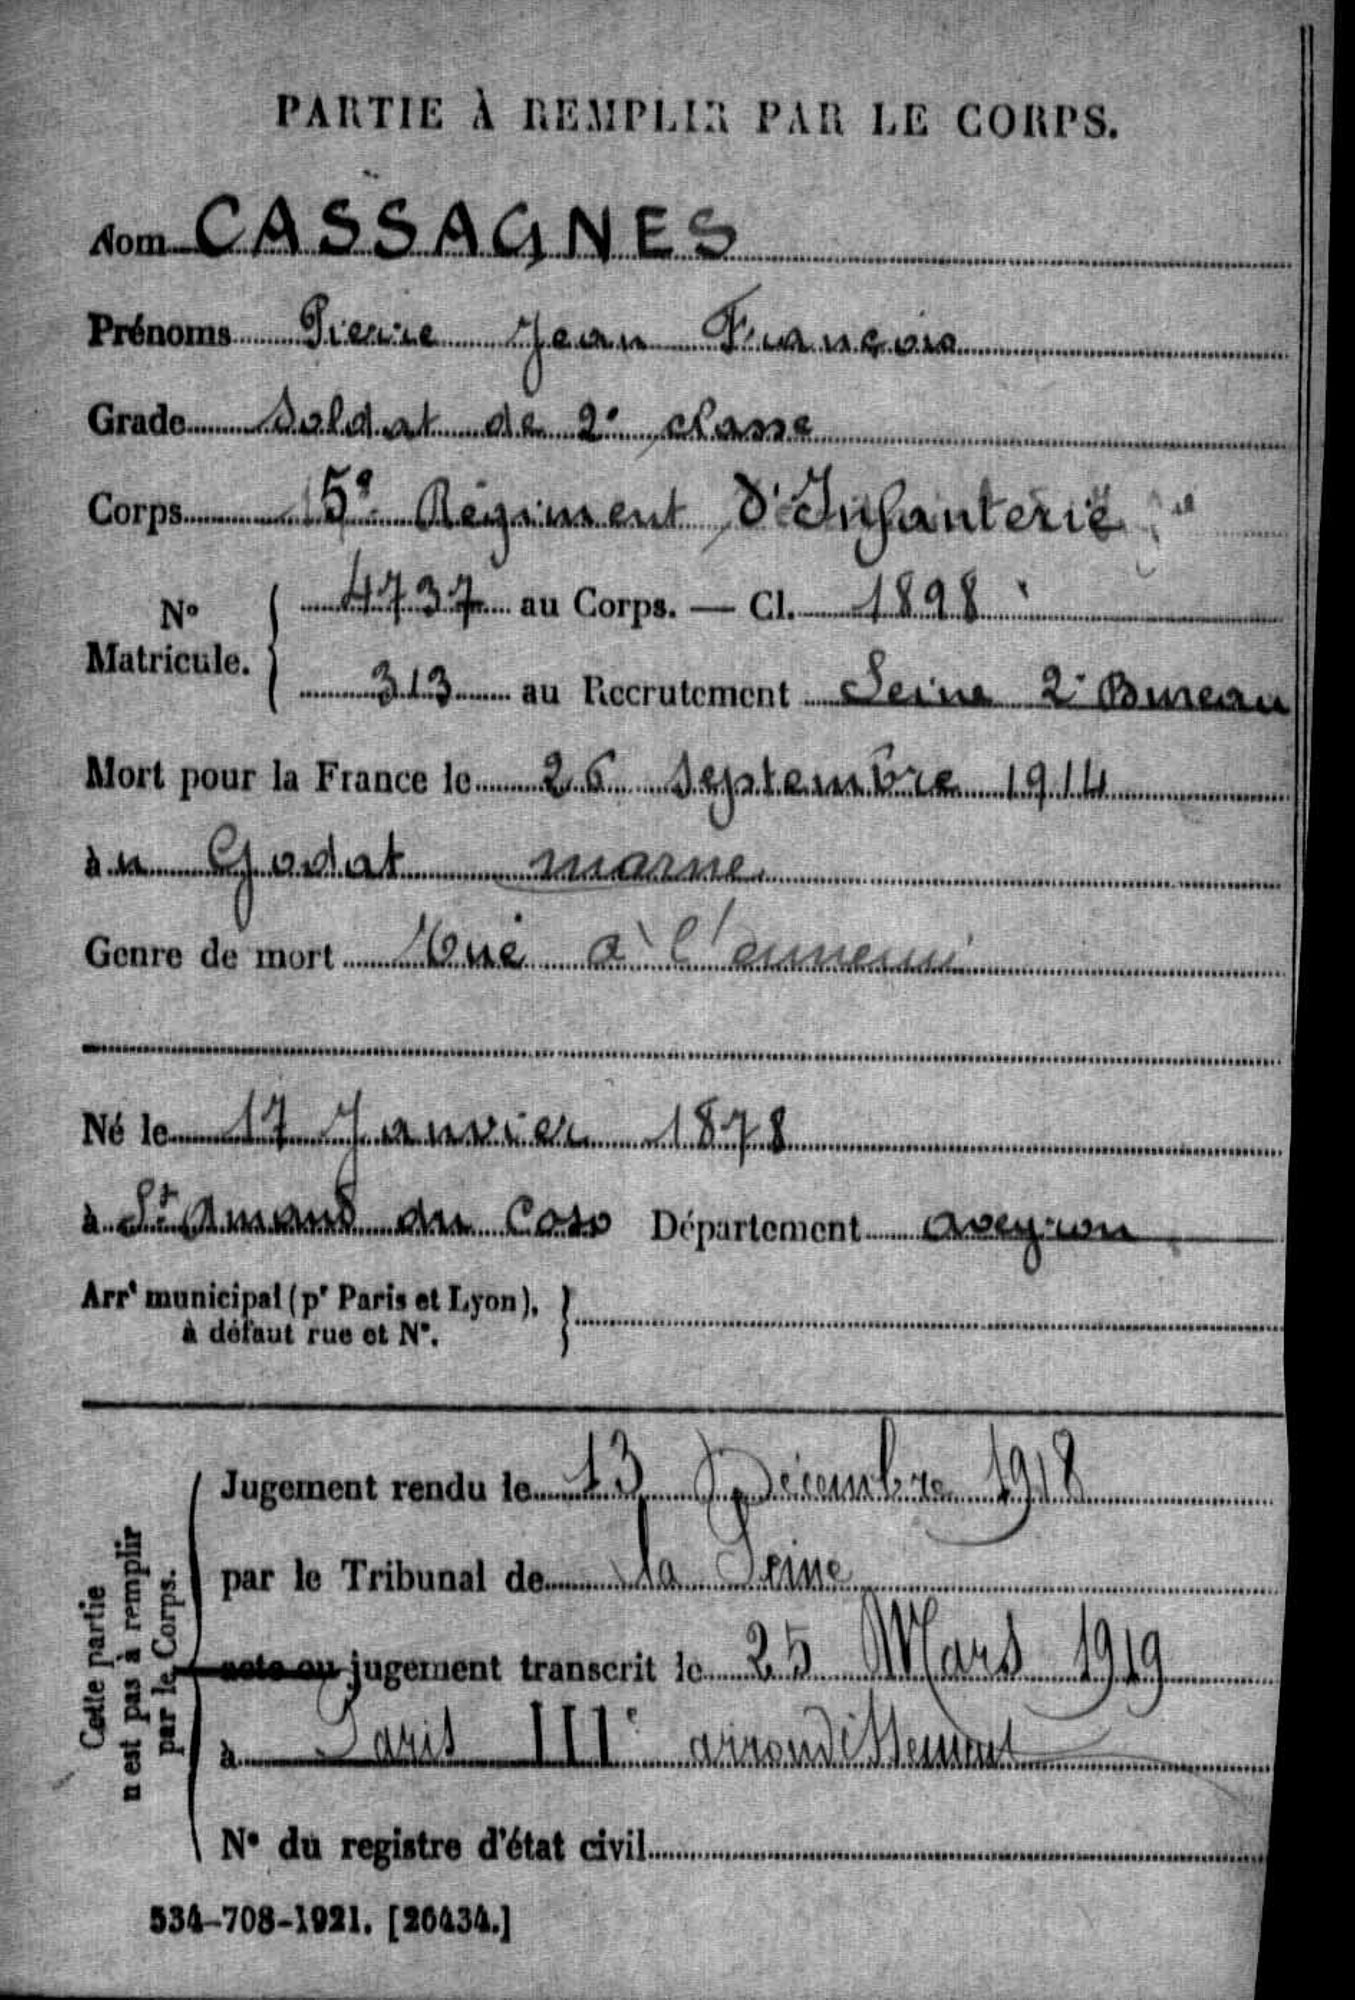 PARTIE À REMPLIR PAR LE CORPS.
Nom CASSAGNES
Prénoms Pierre Jean François
Grade Soldat de 2e classe
Corps 5e Régiment d'Infanterie
No Matricule. 4737 au Corps. — Cl. 1898
313 au Recrutement Seine 2e Bureau
Mort pour la France le 26 Septembre 1914
à Godat marne
Genre de mort Tué à l'ennemi
Né le 17 Janvier 1878
à St Amand du Département aveyron
Arrt municipal (pr Paris et Lyon),
à défaut rue et No.
Cette partie
n'est pas à remplir
par le Corps.
Jugement rendu le 13 Décembre 1918
par le Tribunal de la Seine
acte ou jugement transcrit le 25 Mars 1919
à Paris IIIe arrondissement
No du registre d'état civil
534-708-1921. [26434.]